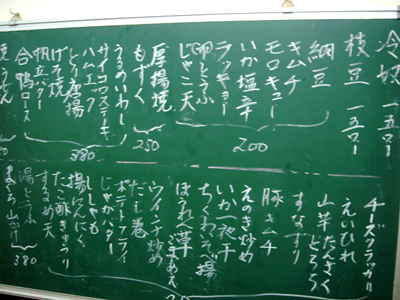 冷奴 一五〇
枝豆 一五〇
納豆
キムチ
モロキュー
いか塩辛
ラッキョー
卵とうふ
じゃこ天
200
厚揚焼
もずく
250
うるめいわし
サイコロステーキ
ハムエッグ
とり唐揚
げそ焼
帆立バター
合鴨ロース
焼うどん
380
チーズクラッカー
えいひれ
山芋たんざく
とろろ
すなずり
豚キムチ
えのき炒め
いか一夜干
ちくわいそべ揚
ほうれん草
ごまあえ
ウインナ炒め
だし巻
ポテトフライ
じゃがバター
ししゃも
揚にんにく
たこ酢きゅうり
するめ天
湯どうふ
まぐろ山かけ
380